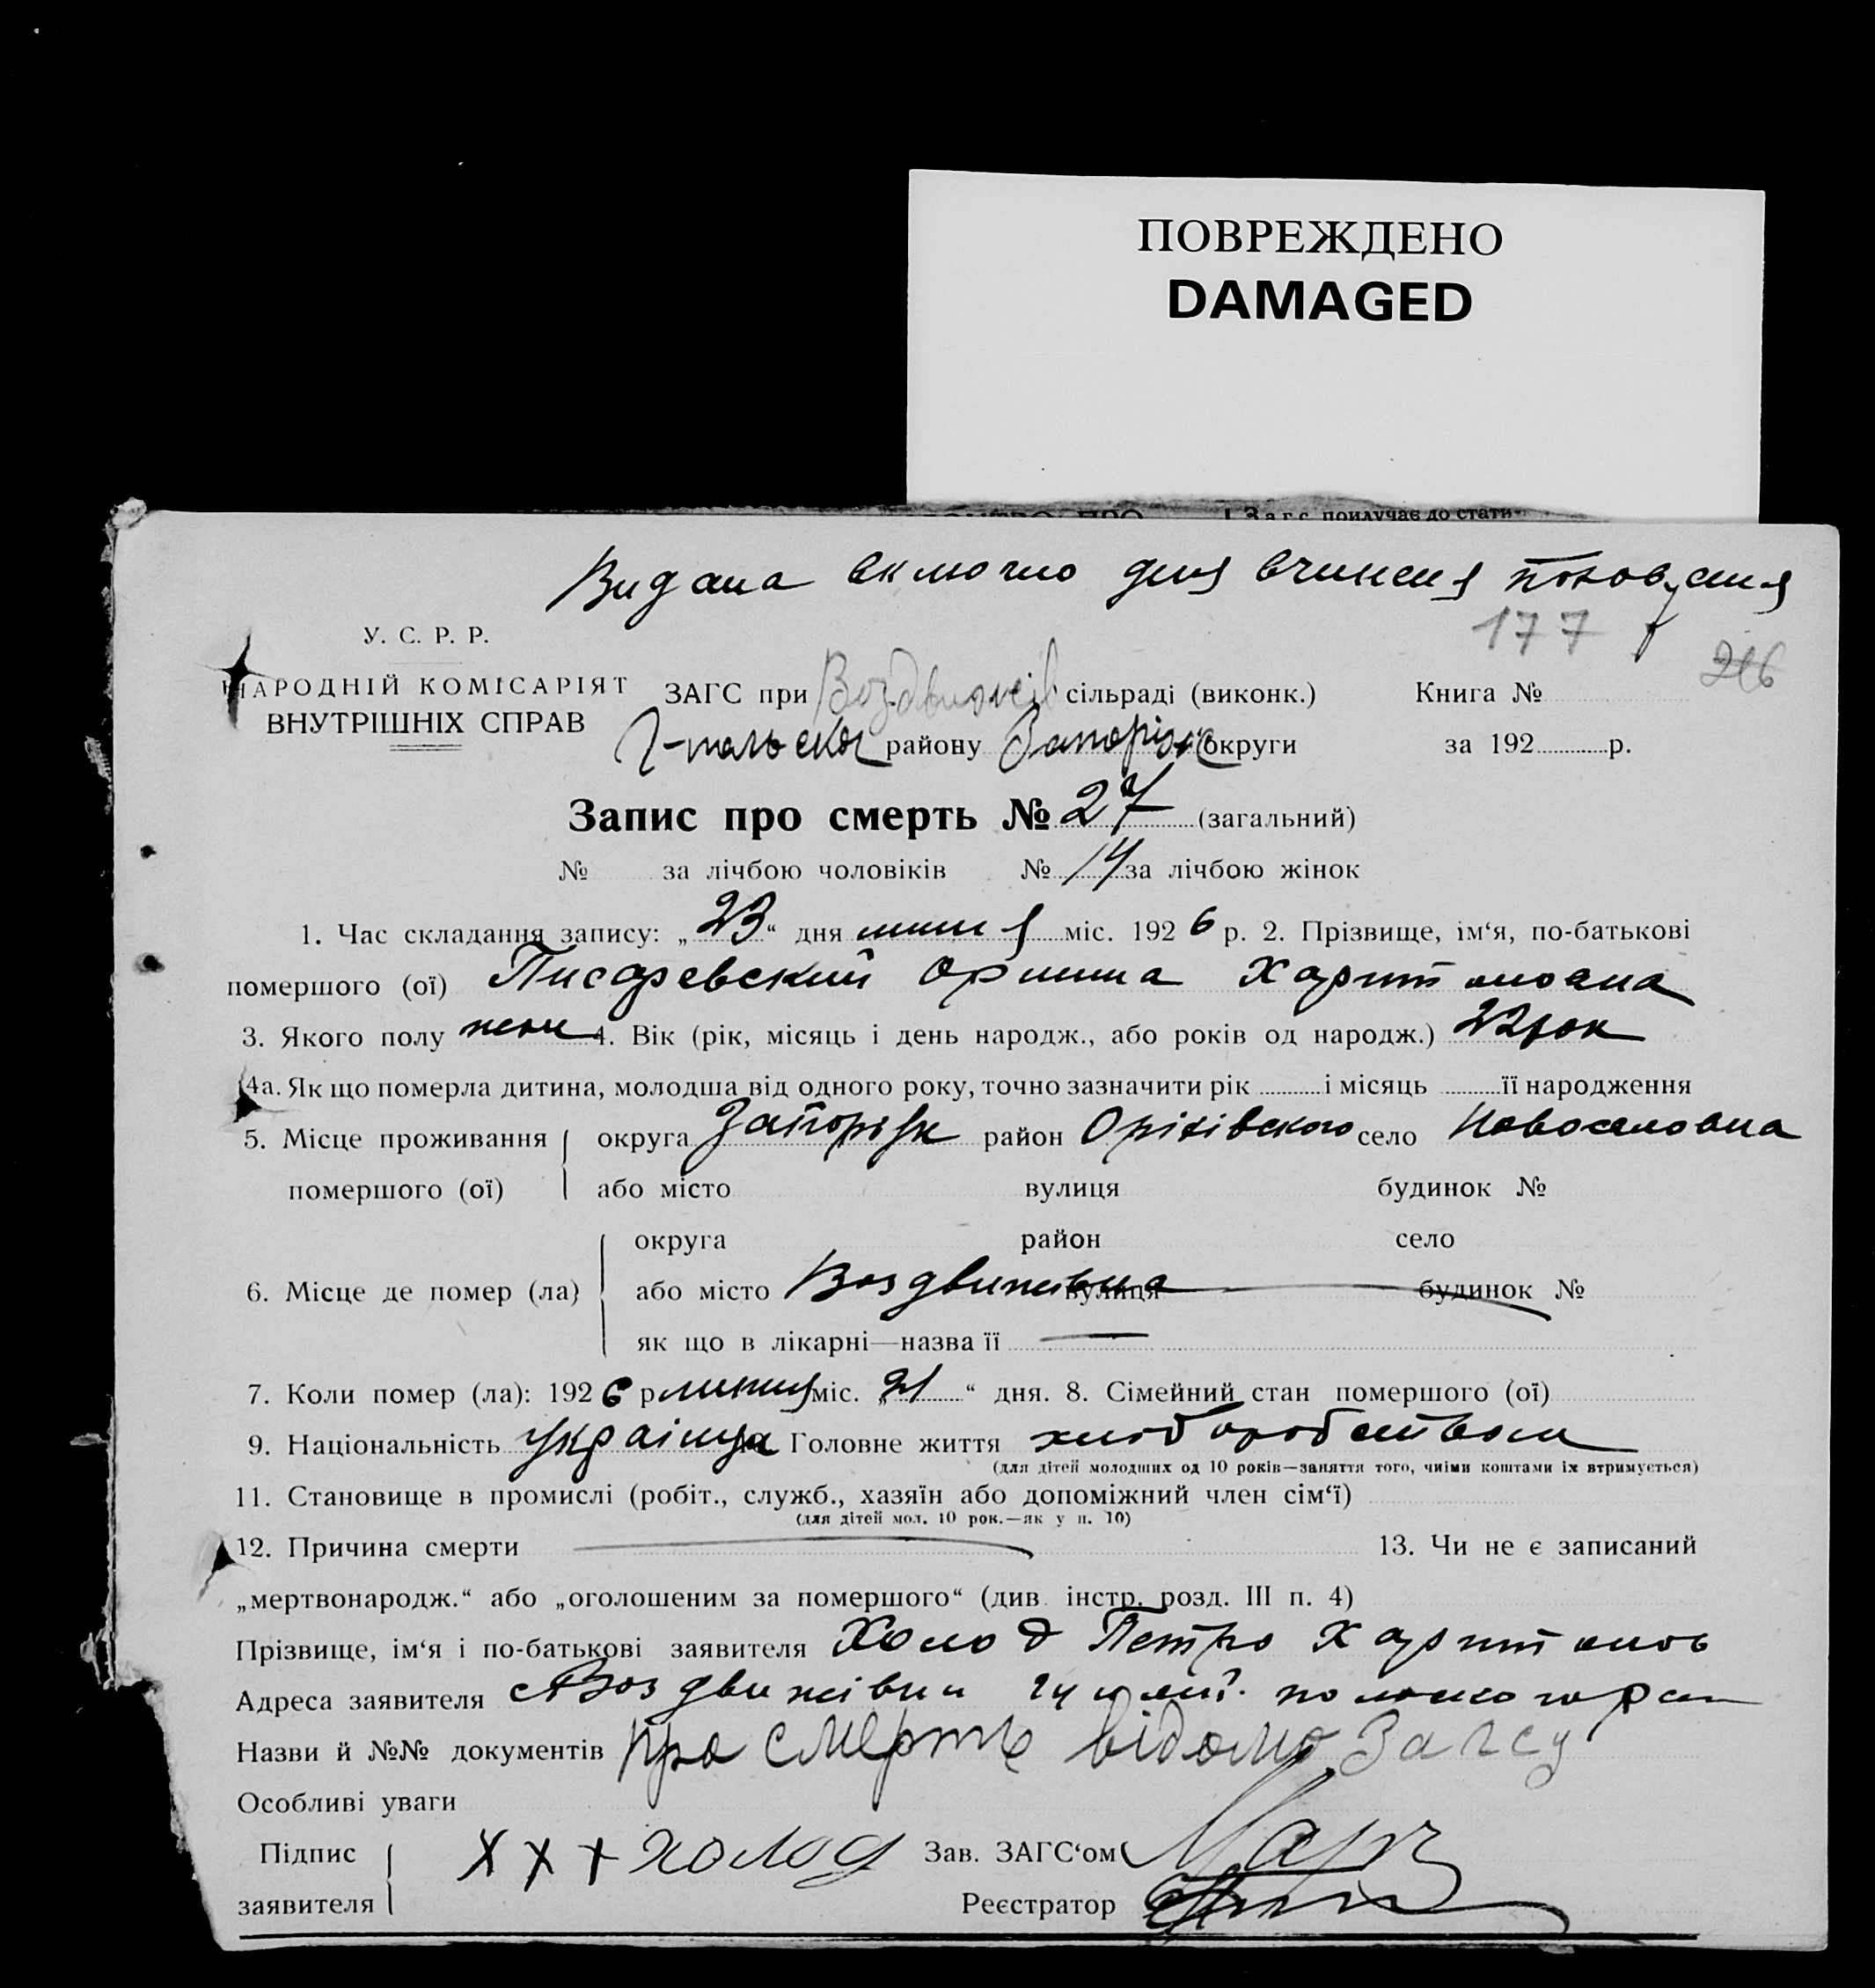 ПОВРЕЖДЕНО
DAMAGED
Загс прилучає до стати-
Видана виключно для вчинення поховання
177
У. С. Р. Р.
216
НАРОДНІЙ КОМІСАРІЯТ ЗАГС при Воздвижів сільраді (виконк.) Книга №
ВНУТРІШНІХ СПРАВ Г-польськ району Запоріжс округи за 192 р.
Запис про смерть № 27 (загальний)
№ за лічбою чоловіків № 14 за лічбою жінок
1. Час складання запису: „23“ дня липня міс. 1926 р. 2. Прізвище, ім‘я, по-батькові
помершого (ої) Писаревский Орина Харитоновна
3. Якого полу жін 4. Вік (рік, місяць і день народж., або років од народж.) 22 рок
4а. Як що померла дитина, молодша від одного року, точно зазначити рік і місяць її народження
5. Місце проживання округа Запоріжк район Оріхівского село Новоселовка
помершого (ої) або місто вулиця будинок №
округа район село
6. Місце де помер (ла) або місто Воздвижівка вулиця будинок №
як що в лікарні—назва її
7. Коли помер (ла): 1926 р липня міс. „21“ дня. 8. Сімейний стан помершого (ої)
9. Національність українка Головне життя хлоборобством
(для дітей молодших од 10 років—заняття того, чиїми коштами їх втримується)
11. Становище в промислі (робіт., служб., хазяїн або допоміжний член сім‘ї)
(для дітей мол. 10 рок.—як у п. 10)
12. Причина смерти 13. Чи не є записаний
„мертвонародж.“ або „оголошеним за помершого“ (див. інстр. розд. III п. 4)
Прізвище, ім‘я і по-батькові заявителя Холод Петро Харитонов
Адреса заявителя с Воздвижівки гуляй. польского рай
Назви й №№ документів Про смерть відомо Загсу
Особливі уваги
Підпис Х Х + холод Зав. ЗАГС‘ом
заявителя Реєстратор